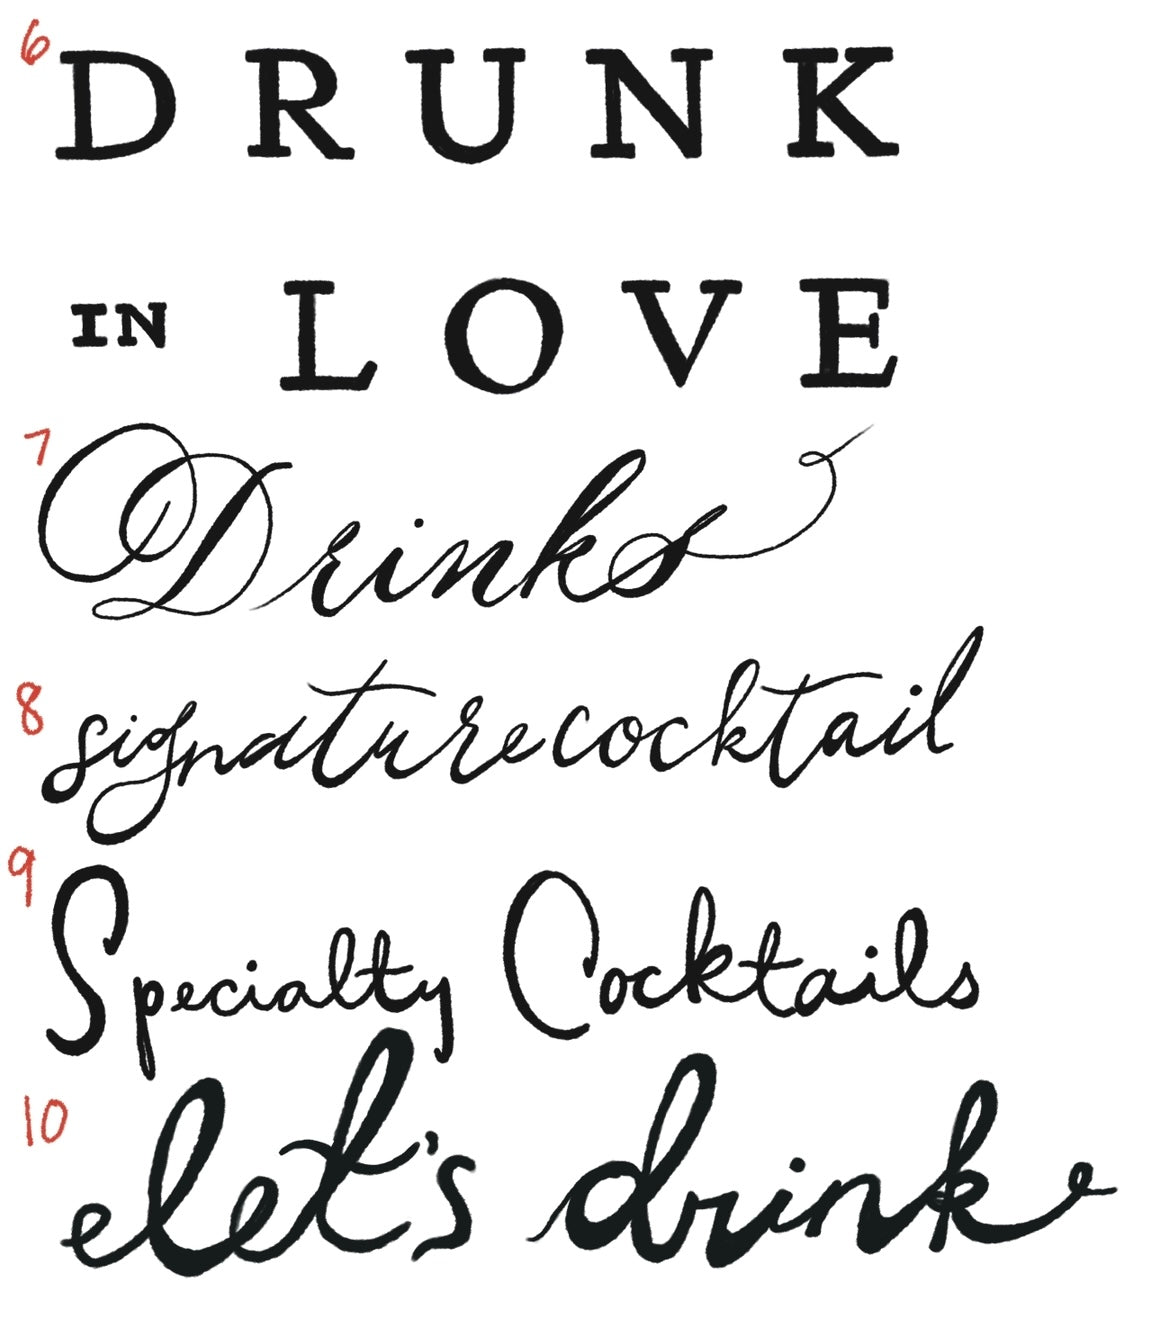 6
DRUNK
IN LOVE
7
Drinks
8
signature cocktail
9
Specialty Cocktails
10
let's drink